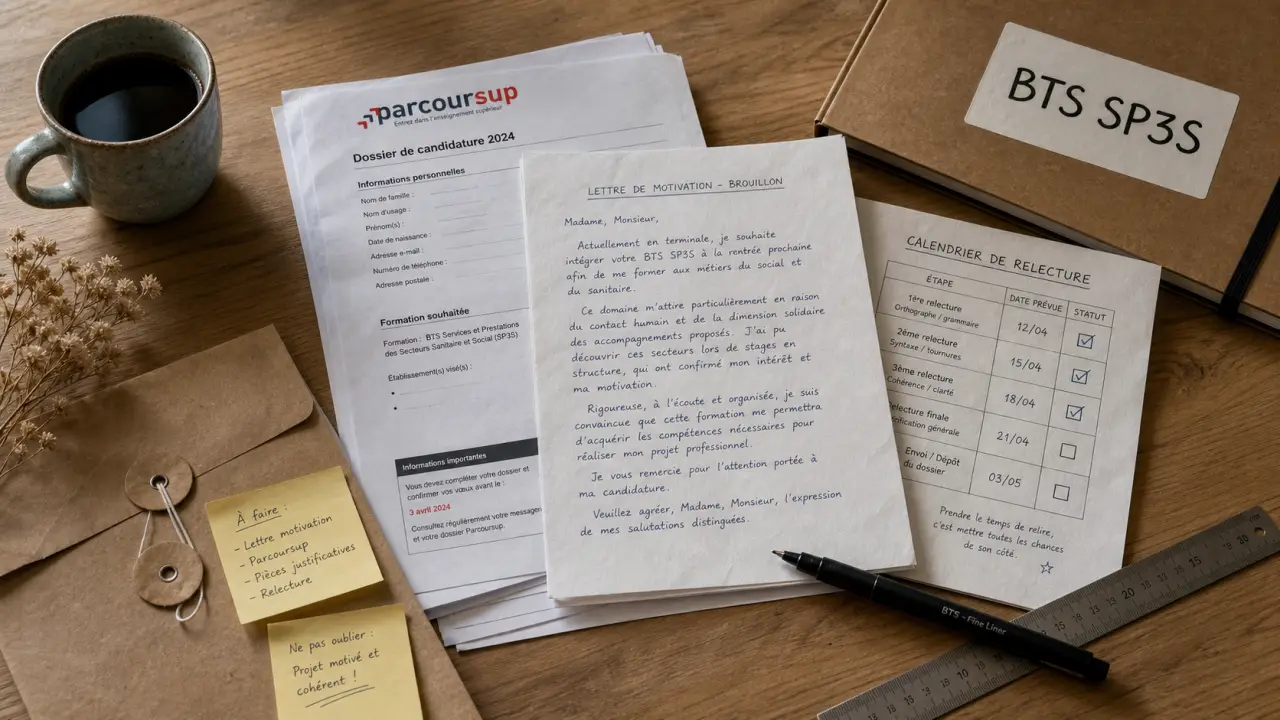 parcoursup
Entrez dans l'enseignement supérieur
Dossier de candidature 2024
Informations personnelles
Nom de famille :
Nom d'usage :
Prénom(s) :
Date de naissance :
Adresse e-mail :
Numéro de téléphone :
Adresse postale :
Formation souhaitée
Formation : BTS Services et Prestations
des Secteurs Sanitaire et Social (SP3S)
Établissement(s) visé(s) :
Informations importantes
Vous devez compléter votre dossier et
confirmer vos vœux avant le :
3 avril 2024
Consultez régulièrement votre messager
et votre dossier Parcoursup.
LETTRE DE MOTIVATION - BROUILLON
Madame, Monsieur,
Actuellement en terminale, je souhaite
intégrer votre BTS SP3S à la rentrée prochaine
afin de me former aux métiers du social et
du sanitaire.
Ce domaine m'attire particulièrement en raison
du contact humain et de la dimension solidaire
des accompagnements proposés. J'ai pu
découvrir ces secteurs lors de stages en
structure, qui ont confirmé mon intérêt et
ma motivation.
Rigoureuse, à l'écoute et organisée, je suis
convaincue que cette formation me permettra
d'acquérir les compétences nécessaires pour
réaliser mon projet professionnel.
Je vous remercie pour l'attention portée à
ma candidature.
Veuillez agréer, Madame, Monsieur, l'expression
de mes salutations distinguées.
BTS SP3S
CALENDRIER DE RELECTURE
ÉTAPE DATE PRÉVUE STATUT
1ère relecture 12/04
Orthographe / grammaire
2ème relecture 15/04
Syntaxe / tournures
3ème relecture 18/04
Cohérence / clarté
electure finale 21/04
rification générale
Envoi / Dépôt 03/05
du dossier
Prendre le temps de relire,
c'est mettre toutes les chances
de son côté.
À faire :
- Lettre motivation
- Parcoursup
- Pièces justificatives
- Relecture
Ne pas oublier :
Projet motivé et
cohérent !
BTS - Fine Liner